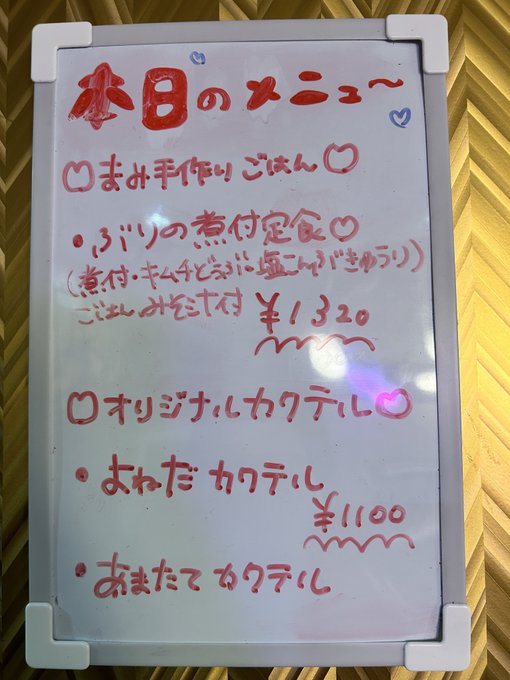 本日のメニュ〜
♡まみ手作りごはん♡
・ぶりの煮付定食♡
(煮付・キムチどうふ・塩こんぶきゅうり)
ごはん みそ汁付
¥1320
♡オリジナルカクテル♡
・よねだ カクテル
¥1100
・あまたてカクテル